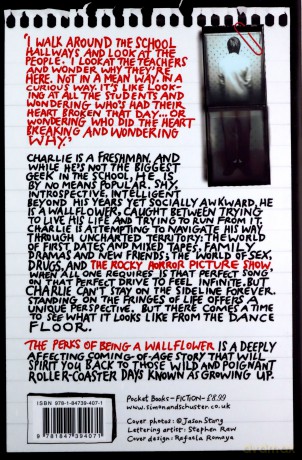 'I WALK AROUND THE SCHOOL
HALLWAYS AND LOOK AT THE
PEOPLE. I LOOK AT THE TEACHERS
AND WONDER WHY THEY'RE
HERE. NOT IN A MEAN WAY. IN A
CURIOUS WAY. IT'S LIKE LOOK-
ING AT ALL THE STUDENTS AND
WONDERING WHO'S HAD THEIR
HEART BROKEN THAT DAY... OR
WONDERING WHO DID THE HEART
BREAKING AND WONDERING
WHY.'
CHARLIE IS A FRESHMAN. AND
WHILE HE'S NOT THE BIGGEST
GEEK IN THE SCHOOL, HE IS
BY NO MEANS POPULAR. SHY,
INTROSPECTIVE, INTELLIGENT
BEYOND HIS YEARS YET SOCIALLY AWKWARD, HE
IS A WALLFLOWER, CAUGHT BETWEEN TRYING
TO LIVE HIS LIFE AND TRYING TO RUN FROM IT.
CHARLIE IS ATTEMPTING TO NAVIGATE HIS WAY
THROUGH UNCHARTED TERRITORY: THE WORLD
OF FIRST DATES AND MIXED TAPES, FAMILY
DRAMAS AND NEW FRIENDS; THE WORLD OF SEX,
DRUGS, AND THE ROCKY HORROR PICTURE SHOW,
WHEN ALL ONE REQUIRES IS THAT PERFECT SONG
ON THAT PERFECT DRIVE TO FEEL INFINITE. BUT
CHARLIE CAN'T STAY ON THE SIDELINE FOREVER.
STANDING ON THE FRINGES OF LIFE OFFERS A
UNIQUE PERSPECTIVE. BUT THERE COMES A TIME
TO SEE WHAT IT LOOKS LIKE FROM THE DANCE
FLOOR.
THE PERKS OF BEING A WALLFLOWER IS A DEEPLY
AFFECTING COMING-OF-AGE STORY THAT WILL
SPIRIT YOU BACK TO THOSE WILD AND POIGNANT
ROLLER-COASTER DAYS KNOWN AS GROWING UP.
ISBN 978-1-84739-407-1
9 781847 394071
Pocket Books - FICTION - £8.99
www.simonandschuster.co.uk
Cover photos: © Jason Stang
Lettering artist: Stephen Raw
Cover design: Rafaela Romaya